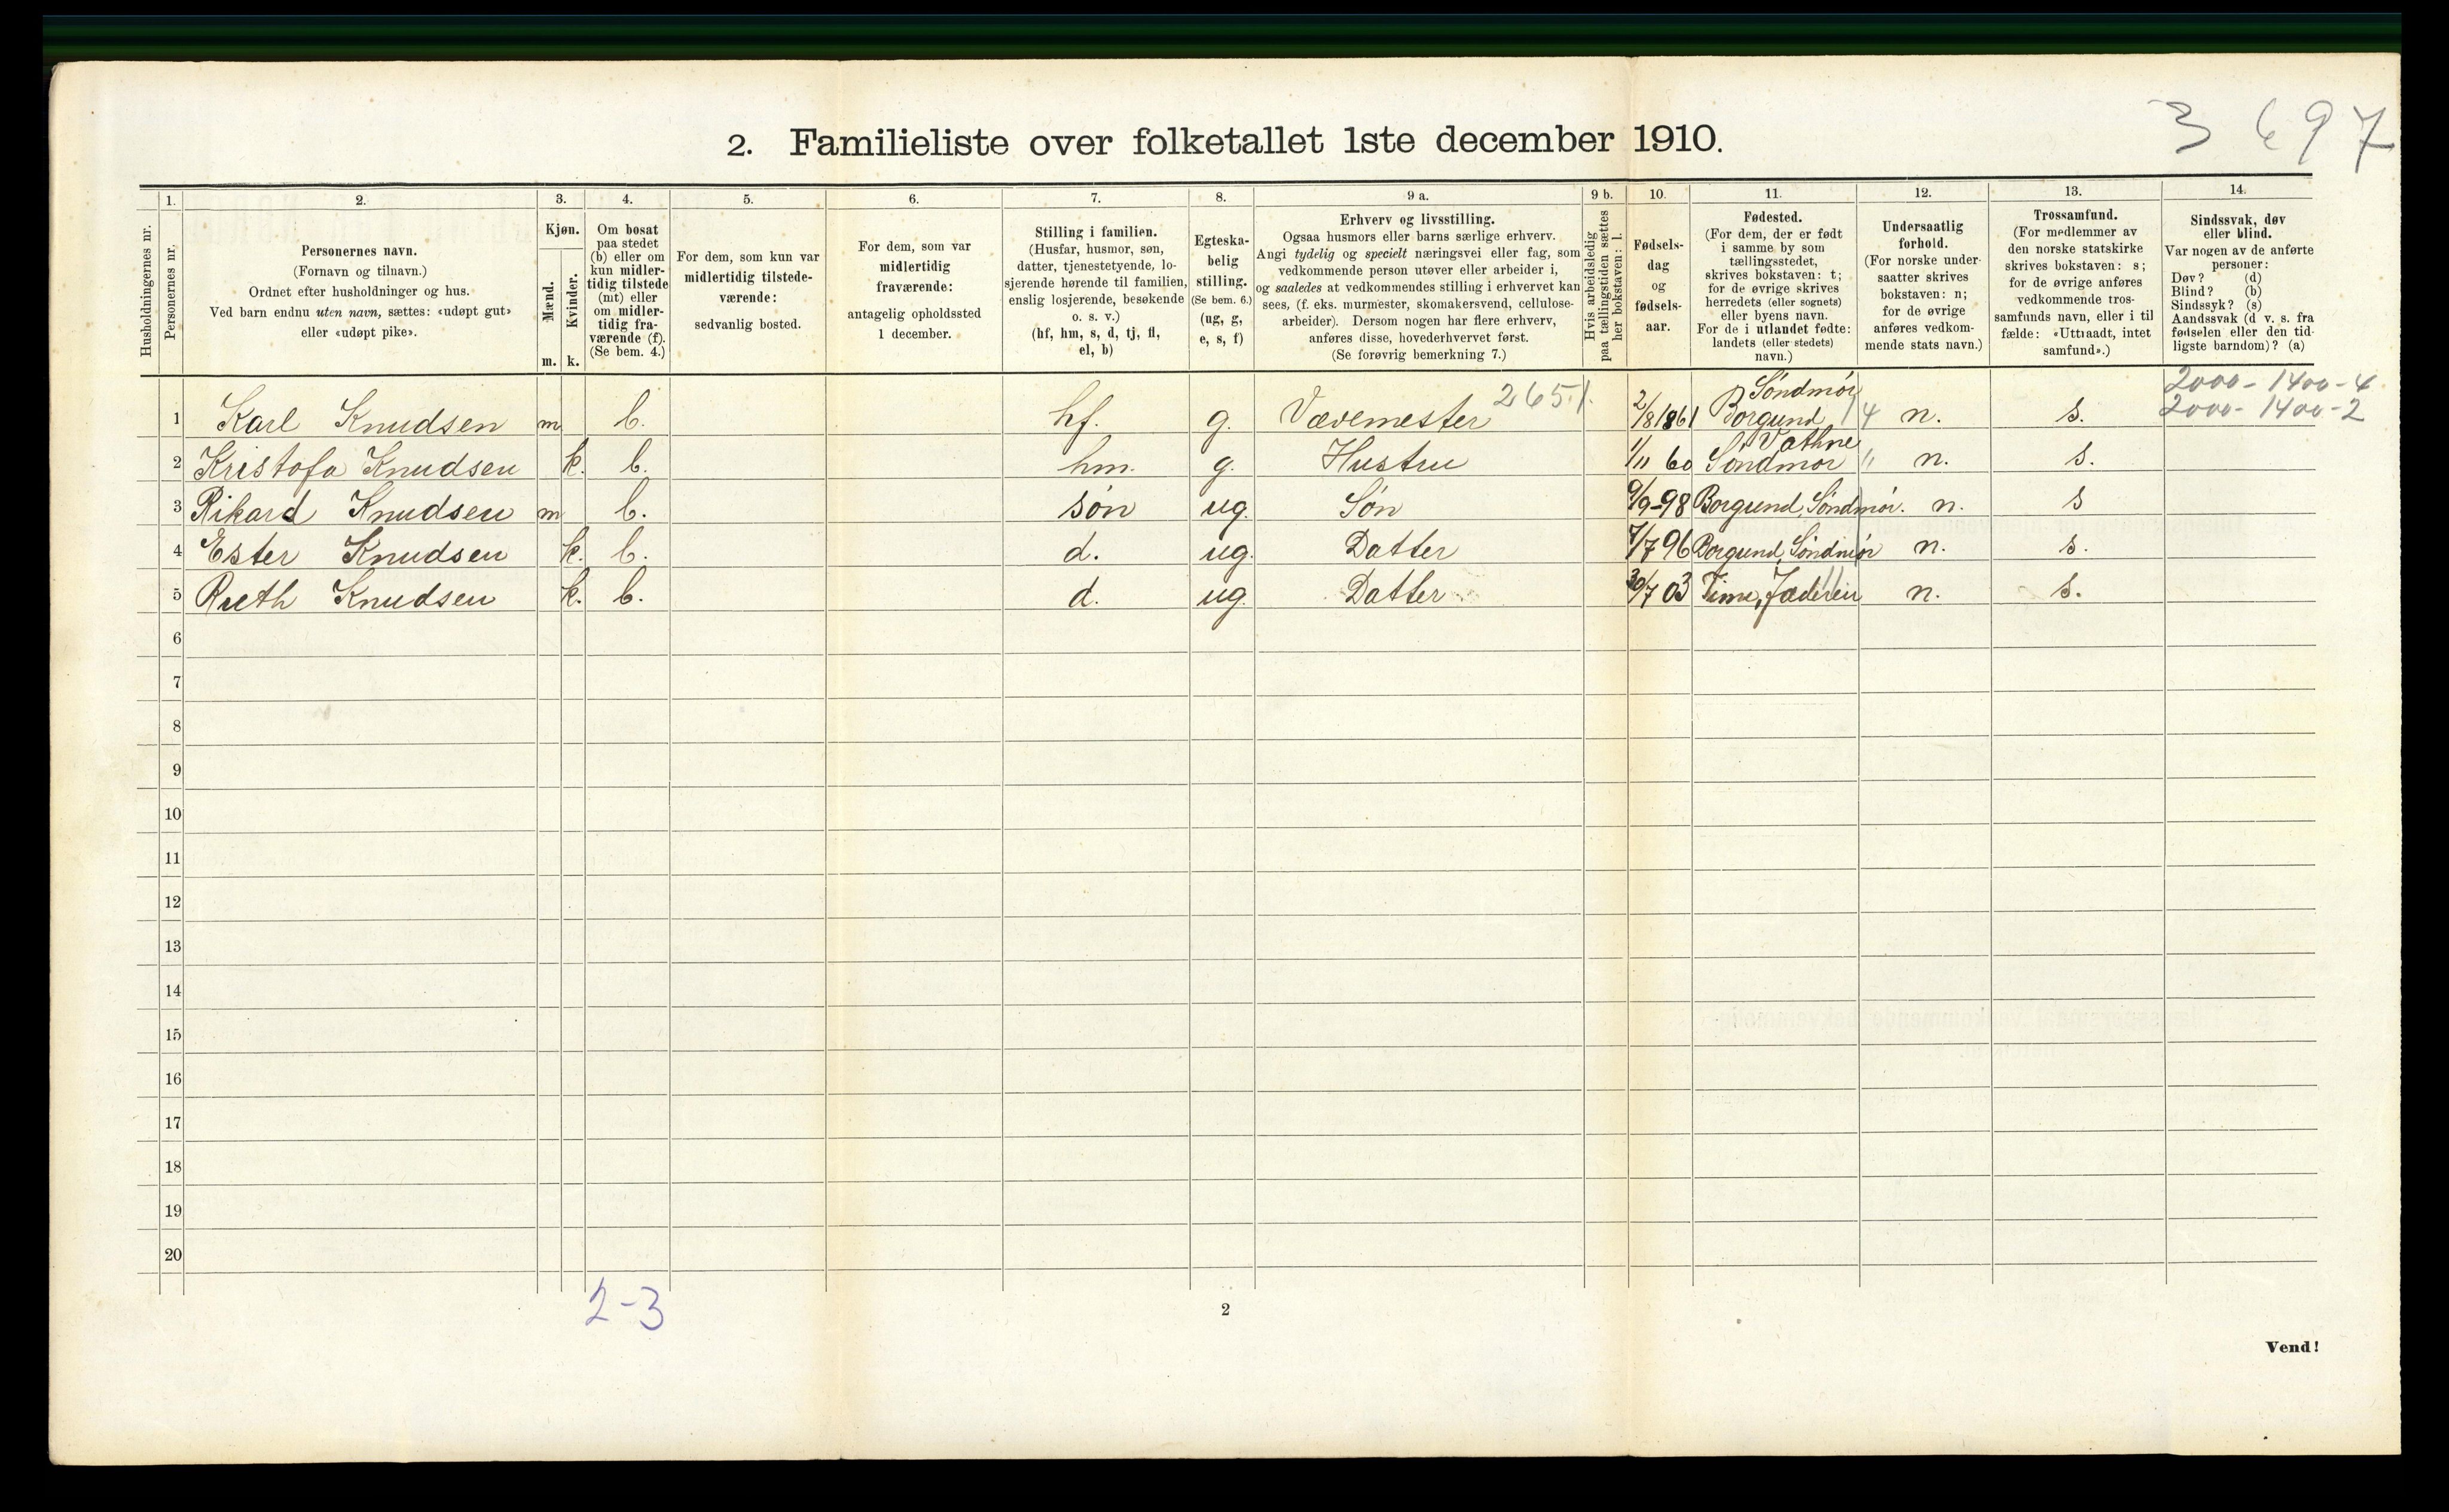 3 697
2. Familieliste over folketallet 1ste december 1910.
Husholdningernes nr.
1.
Personernes nr.
2.
Personernes navn.
(Fornavn og tilnavn.)
Ordnet efter husholdninger og hus.
Ved barn endnu uten navn, sættes: «udøpt gut»
eller «udøpt pike».
3.
Kjøn.
Mænd.
Kvinder.
m. k.
4.
Om bosat
paa stedet
(b) eller om
kun midler-
tidig tilstede
(mt) eller
om midler-
tidig fra-
værende (f).
(Se bem. 4.)
5.
For dem, som kun var
midlertidig tilstede-
værende:
sedvanlig bosted.
6.
For dem, som var
midlertidig
fraværende:
antagelig opholdssted
1 december.
7.
Stilling i familien.
(Husfar, husmor, søn,
datter, tjenestetyende, lo-
sjerende hørende til familien,
enslig losjerende, besøkende
o. s. v.)
(hf, hm, s, d, tj, fl,
el, b)
8.
Egteska-
belig
stilling.
(Se bem. 6.)
(ug, g,
e, s, f)
9 a.
Erhverv og livsstilling.
Ogsaa husmors eller barns særlige erhverv.
Angi tydelig og specielt næringsvei eller fag, som
vedkommende person utøver eller arbeider i,
og saaledes at vedkommendes stilling i erhvervet kan
sees, (f. eks. murmester, skomakersvend, cellulose-
arbeider). Dersom nogen har flere erhverv,
anføres disse, hovederhvervet først.
(Se forøvrig bemerkning 7.)
9 b.
Hvis arbeidsledig
paa tællingstiden sættes
her bokstaven: l.
10.
Fødsels-
dag
og
fødsels-
aar.
11.
Fødested.
(For dem, der er født
i samme by som
tællingsstedet,
skrives bokstaven: t;
for de øvrige skrives
herredets (eller sognets)
eller byens navn.
For de i utlandet fødte:
landets (eller stedets)
navn.)
12.
Undersaatlig
forhold.
(For norske under-
saatter skrives
bokstaven: n;
for de øvrige
anføres vedkom-
mende stats navn.)
13.
Trossamfund.
(For medlemmer av
den norske statskirke
skrives bokstaven: s;
for de øvrige anføres
vedkommende tros-
samfunds navn, eller i til
fælde: «Uttraadt, intet
samfund».)
14.
Sindssvak, døv
eller blind.
Var nogen av de anførte
personer:
Døv? (d)
Blind? (b)
Sindssyk? (s)
Aandssvak (d v. s. fra
fødselen eller den tid-
ligste barndom)? (a)
2000 - 1400 - 4
2000 - 1400 - 2
1 Karl Knudsen m b. hf. g. Vævemester 265.1. 2/8 1861 Borgund Søndmør 14 n. s.
2 Kristofa Knudsen k. b. hm. g. Hustru 1/11 60 Vathne Søndmør " n. s.
3 Rikard Knudsen m b. søn ug. Søn 9/9-98 Borgund, Søndmør. n. s
4 Ester Knudsen k. b. d. ug. Datter 7/7 96 Borgund, Søndmør n. s.
5 Ruth Knudsen k. b. d. ug. Datter 30/7 03 Time, Jæderen n. s.
6
7
8
9
10
11
12
13
14
15
16
17
18
19
20
2-3
2
Vend!